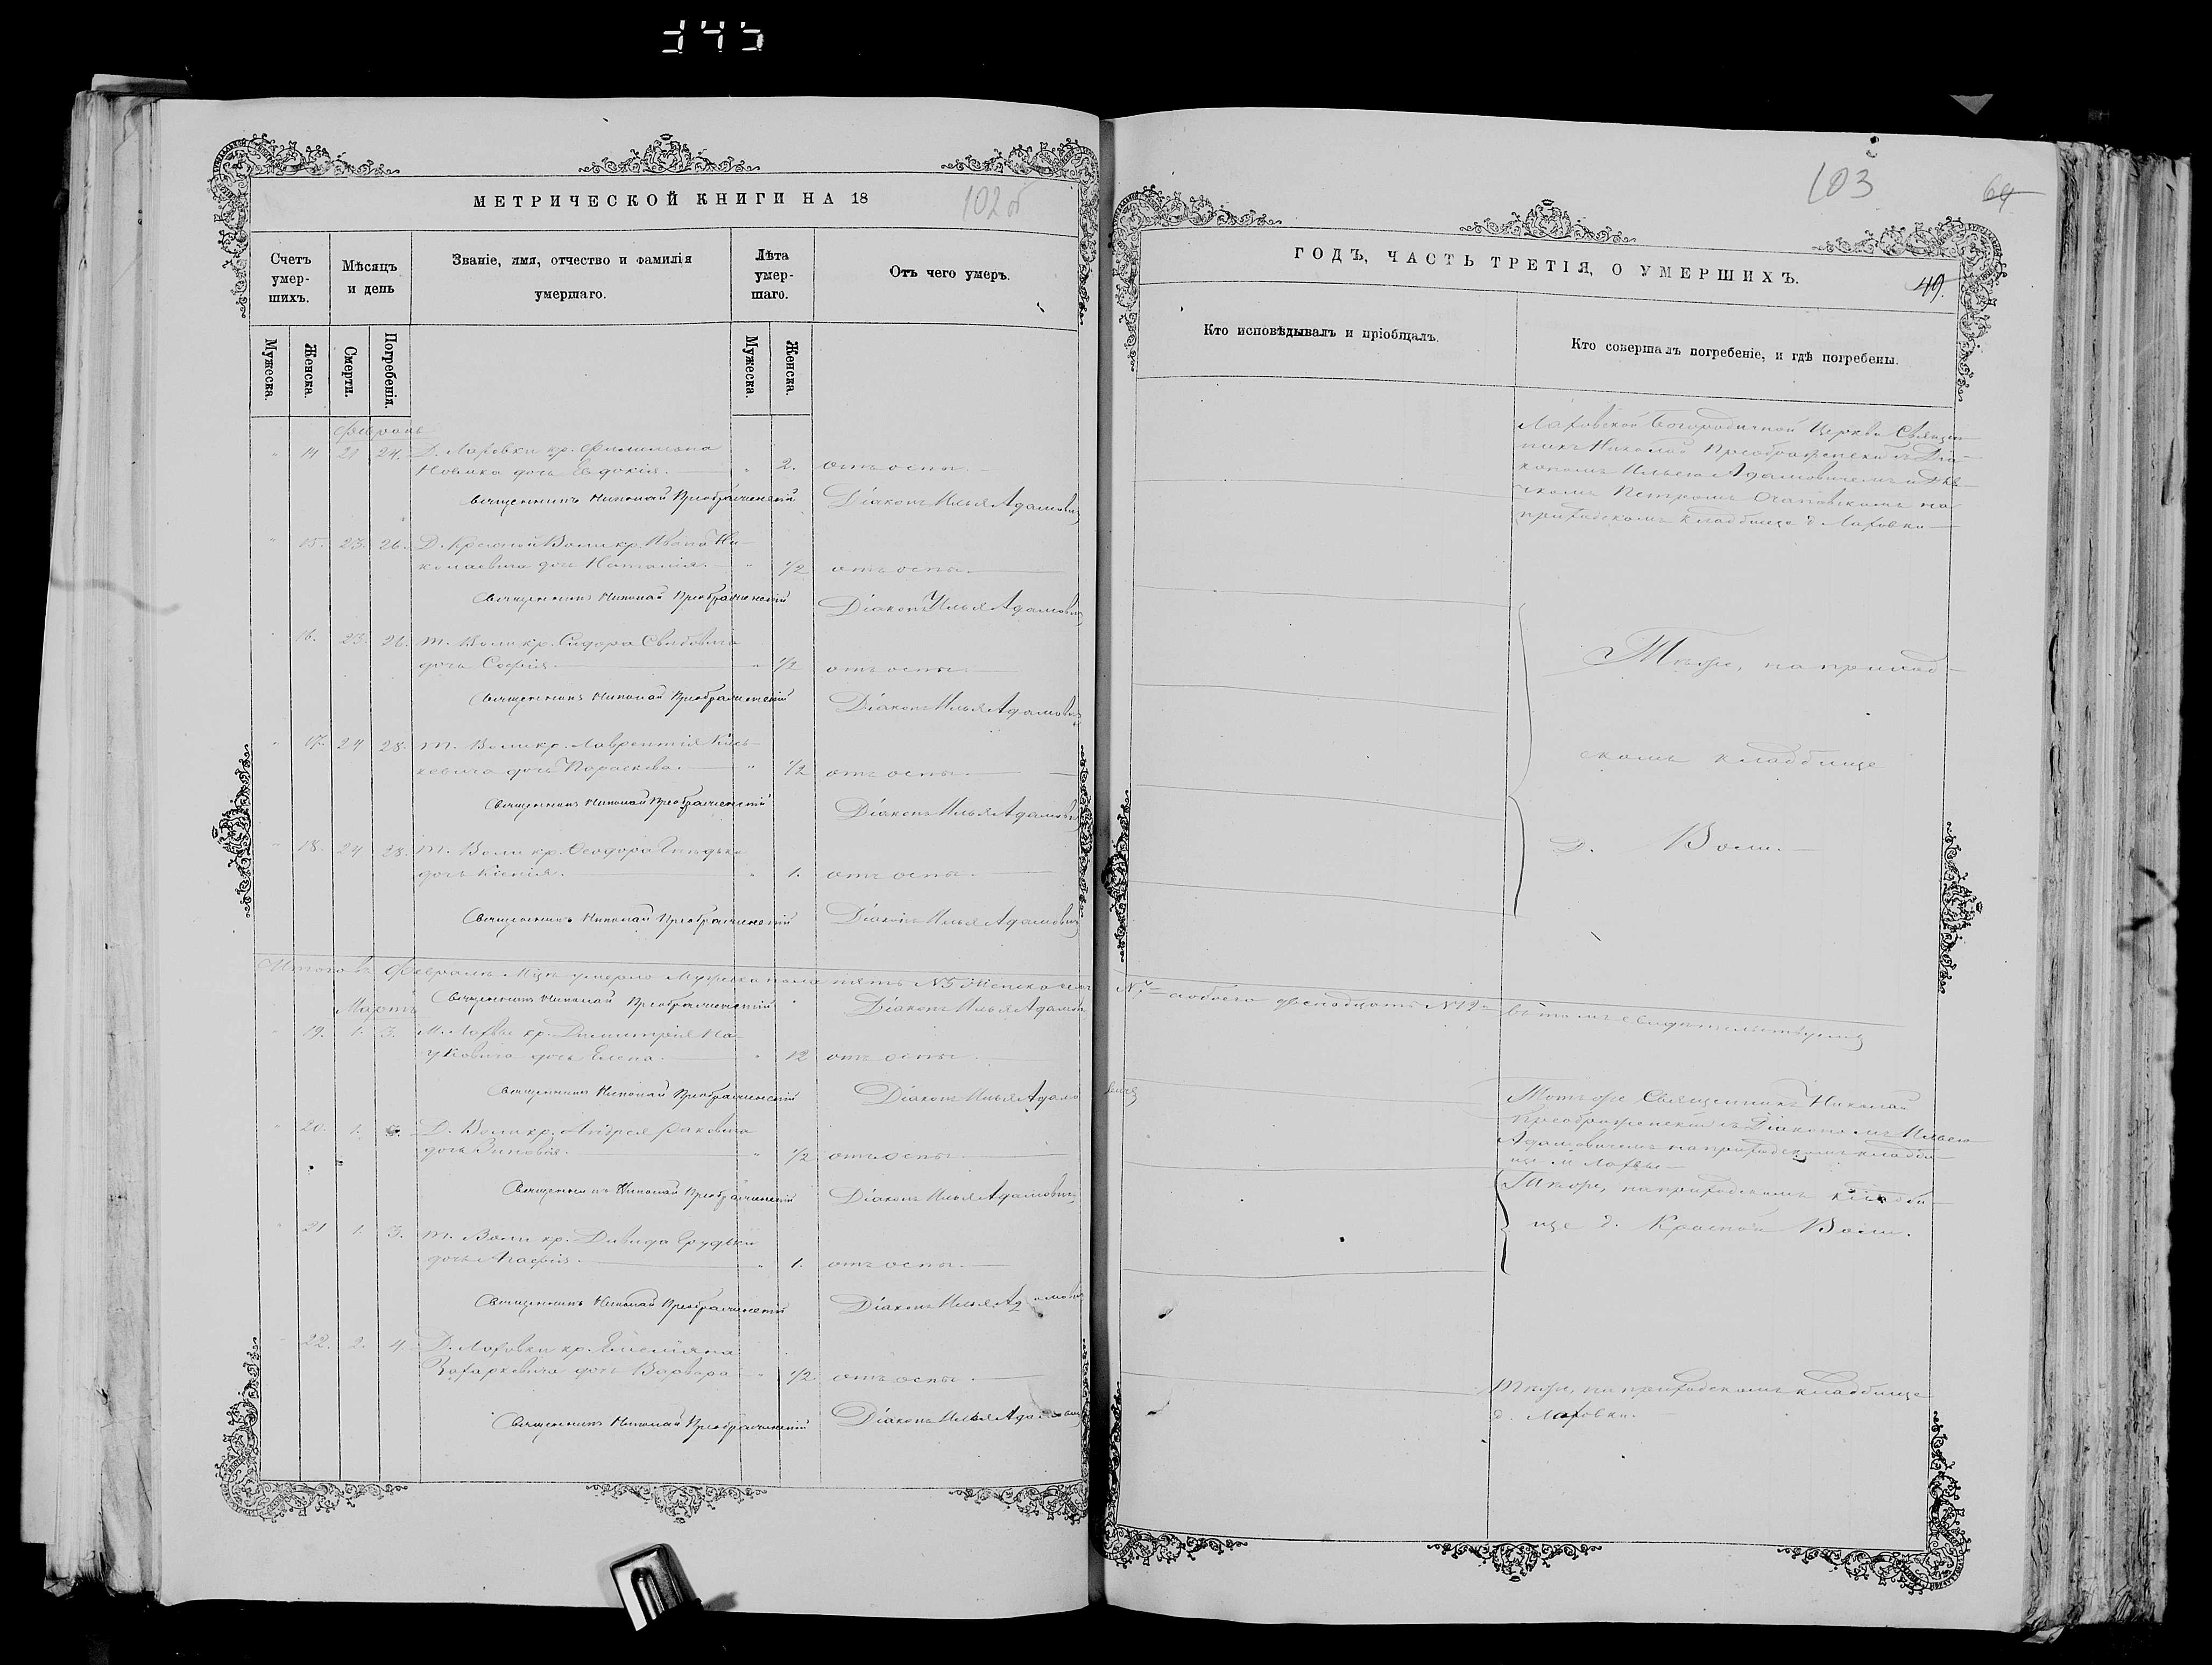 345
МЕТРИЧЕСКОЙ КНИГИ НА 18
102 об
Счетъ умер-шихъ.
Мѣсяцъ и день
Званіе, имя, отчество и фамилія умершаго.
Лѣта умер-шаго.
Отъ чего умеръ.
Мужеска.
Женска.
Смерти.
Погребенія.
Мужеска.
Женска.
Февраль
14 21 24. Д. Лаховки кр. Филимона
Новика дочь Евдокія. 2. отъ оспы.
Священникъ Николай Преображенскій Діаконъ Илья Адамовичъ
15. 23. 26. Д. Красной Воли кр. Ивана Ни-
колаевича дочь Наталія. 1/2 отъ оспы.
Священникъ Николай Преображенскій Діаконъ Илья Адамовичъ
16. 23. 26. т. Воли кр. Сидора
дочь Софія. 1/2 отъ оспы.
Священникъ Николай Преображенскій Діаконъ Илья Адамовичъ
17. 24 28. т. Воли кр. Лаврентія
дочь Параскева. 1/2 отъ оспы.
Священникъ Николай Преображенскій Діаконъ Илья Адамовичъ
18. 24 28. т. Воли кр. Ѳеодора
дочь Ксенія. 1. отъ оспы.
Священникъ Николай Преображенскій Діаконъ Илья Адамовичъ
Итого въ Февралѣ М-цѣ умерло Мужеска пола пять №5 Женска
Мартъ Священникъ Николай Преображенскій Діаконъ Илья Адамов
19. 1. 3. М. Лахвы кр. Димитрія
дочь Елена. 12 отъ оспы.
Священникъ Николай Преображенскій Діаконъ Илья Адамо
20. 1. Д. Воли кр. Андрея
дочь Зиновія. 1/2 отъ оспы.
Священникъ Николай Преображенскій Діаконъ Илья Адамовичъ
21 1. 3. т. Воли кр. Давида
дочь Агафія. 1. отъ оспы.
Священникъ Николай Преображенскій Діаконъ Илья Адамовичъ
22. 2. 4. Д. Лаховки кр. Емеліяна
Захаркевича дочь Варвара 1/2. отъ оспы.
Священникъ Николай Преображенскій Діаконъ Илья Адамовичъ
103
64
ГОДЪ, ЧАСТЬ ТРЕТІЯ, О УМЕРШИХЪ.
49.
Кто исповѣдывалъ и пріобщалъ.
Кто совершалъ погребеніе, и гдѣ погребены.
Лаховской Богородичной Церкви Священ-
никъ Николай Преображенскій съ Діа-
кономъ Ильею Адамовичемъ и Дья-
чкомъ Петромъ на
приходскомъ кладбищѣ д. Лаховки
Тѣже, на приход-
скомъ кладбищѣ
д. Воли.
обоего двѣнадцать №12 въ томъ свидѣтельствуемъ
вичъ
Тотъ же Священникъ Николай
Преображенскій съ Діакономъ Ильею
Адамовичемъ на приходскомъ кладби-
щѣ м. Лахвы
Тѣже, на приходскомъ кладби-
щѣ д. Красной Воли.
Тѣже, на приходскомъ кладбищѣ
д. Лаховки.